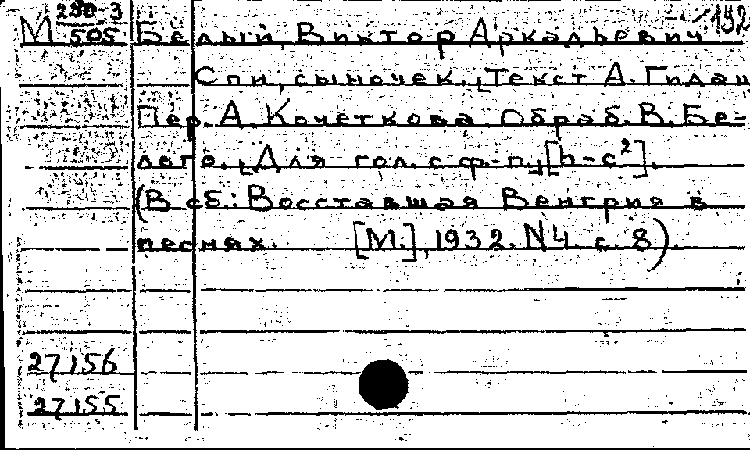 М 280-3/505 Белый, Виктор Аркадьевич 192
Спи, сыночек. [Текст А. Гидаш
Пер. А. Кочеткова. Обраб. В. Бе-
лого. [Для гол. с ф-п.] [h-c²].
(В сб.: Восставшая Венгрия в
песнях. [М.], 1932. N4. с. 8).
27156
27155